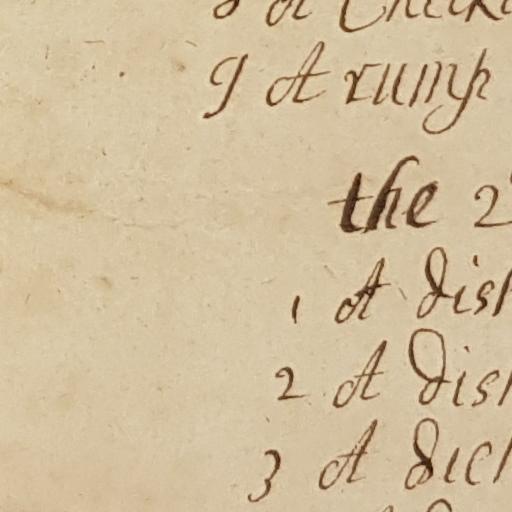 8 A Chicke
9 A rump
the 2
1 A dish
2 A dish
3 A dich